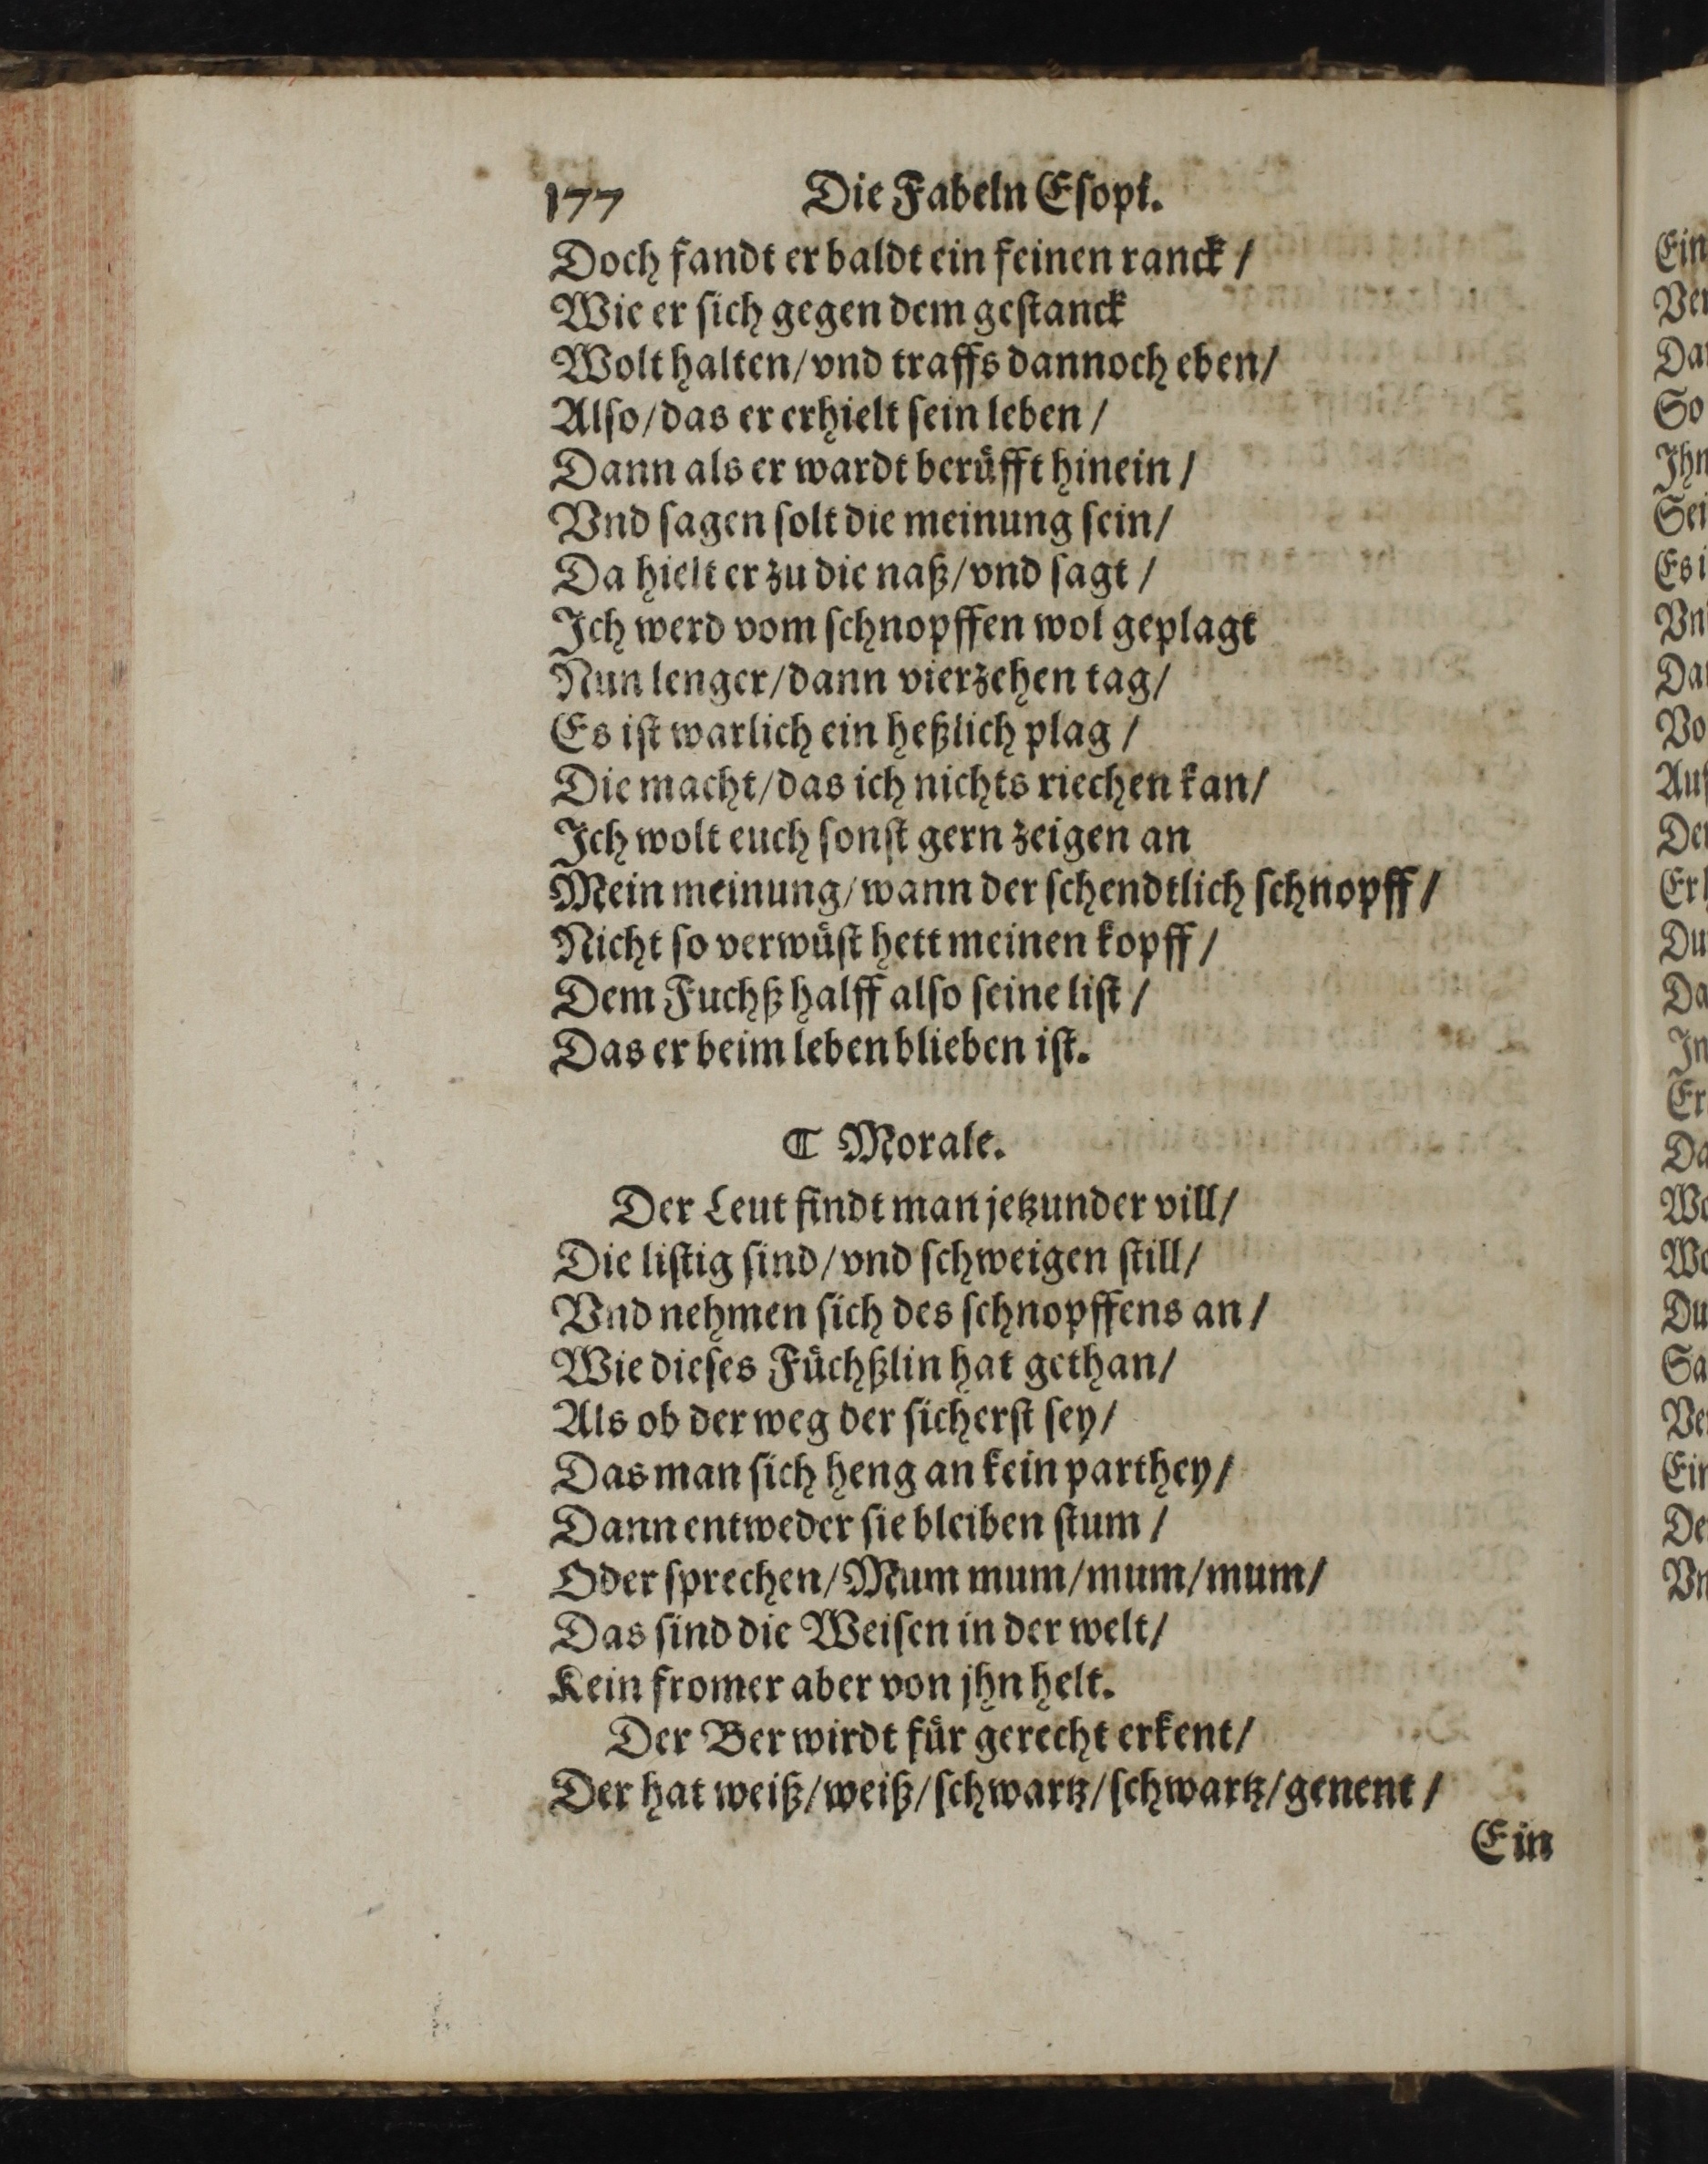 177 Die Fabeln Esopi.
Doch fandt er baldt ein feinen ranck /
Wie er sich gegen dem gestanck
Wolt halten/vnd traffs dannoch eben/
Also/das er erhielt sein leben /
Dann als er wardt berüfft hinein /
Vnd sagen solt die meinung sein/
Da hielt er zu die naß/vnd sagt /
Ich werd vom schnopffen wol geplagt
Nun lenger/dann vierzehen tag/
Es ist warlich ein heßlich plag /
Die macht/das ich nichts riechen kan/
Ich wolt euch sonst gern zeigen an
Mein meinung/wann der schendtlich schnopff /
Nicht so verwüst hett meinen kopff /
Dem Fuchß halff also seine list /
Das er beim leben blieben ist.
¶ Morale.
Der Leut findt man jetzunder vill/
Die listig sind/vnd schweigen still/
Vnd nehmen sich des schnopffens an /
Wie dieses Füchßlin hat gethan/
Als ob der weg der sicherst sey/
Das man sich heng an kein parthey/
Dann entweder sie bleiben stum /
Oder sprechen/Mum mum/mum/mum/
Das sind die Weisen in der welt/
Kein fromer aber von jhn helt.
Der Ber wirdt für gerecht erkent/
Der hat weiß/weiß/schwartz/schwartz/genent /
Ein